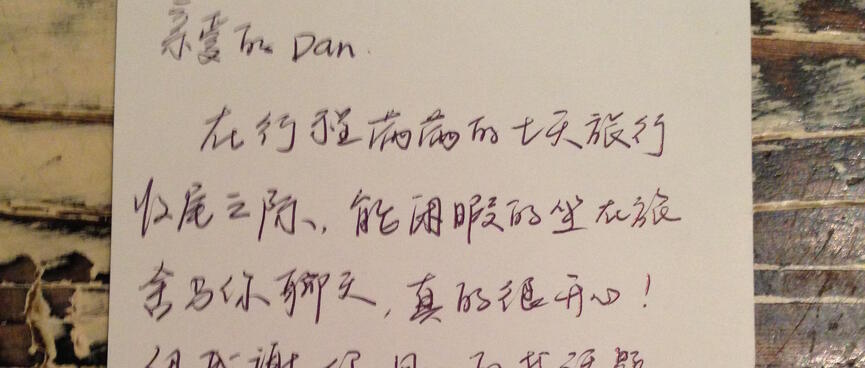 亲爱的 Dan.
在行程满满的七天旅行
收尾之际，能闲暇的坐在旅
舍与你聊天，真的很开心！
很感谢你